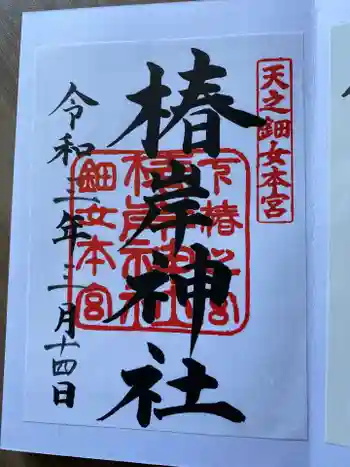 天之鈿女本宮
椿岸神社
令和三年三月十四日
鈿女本宮